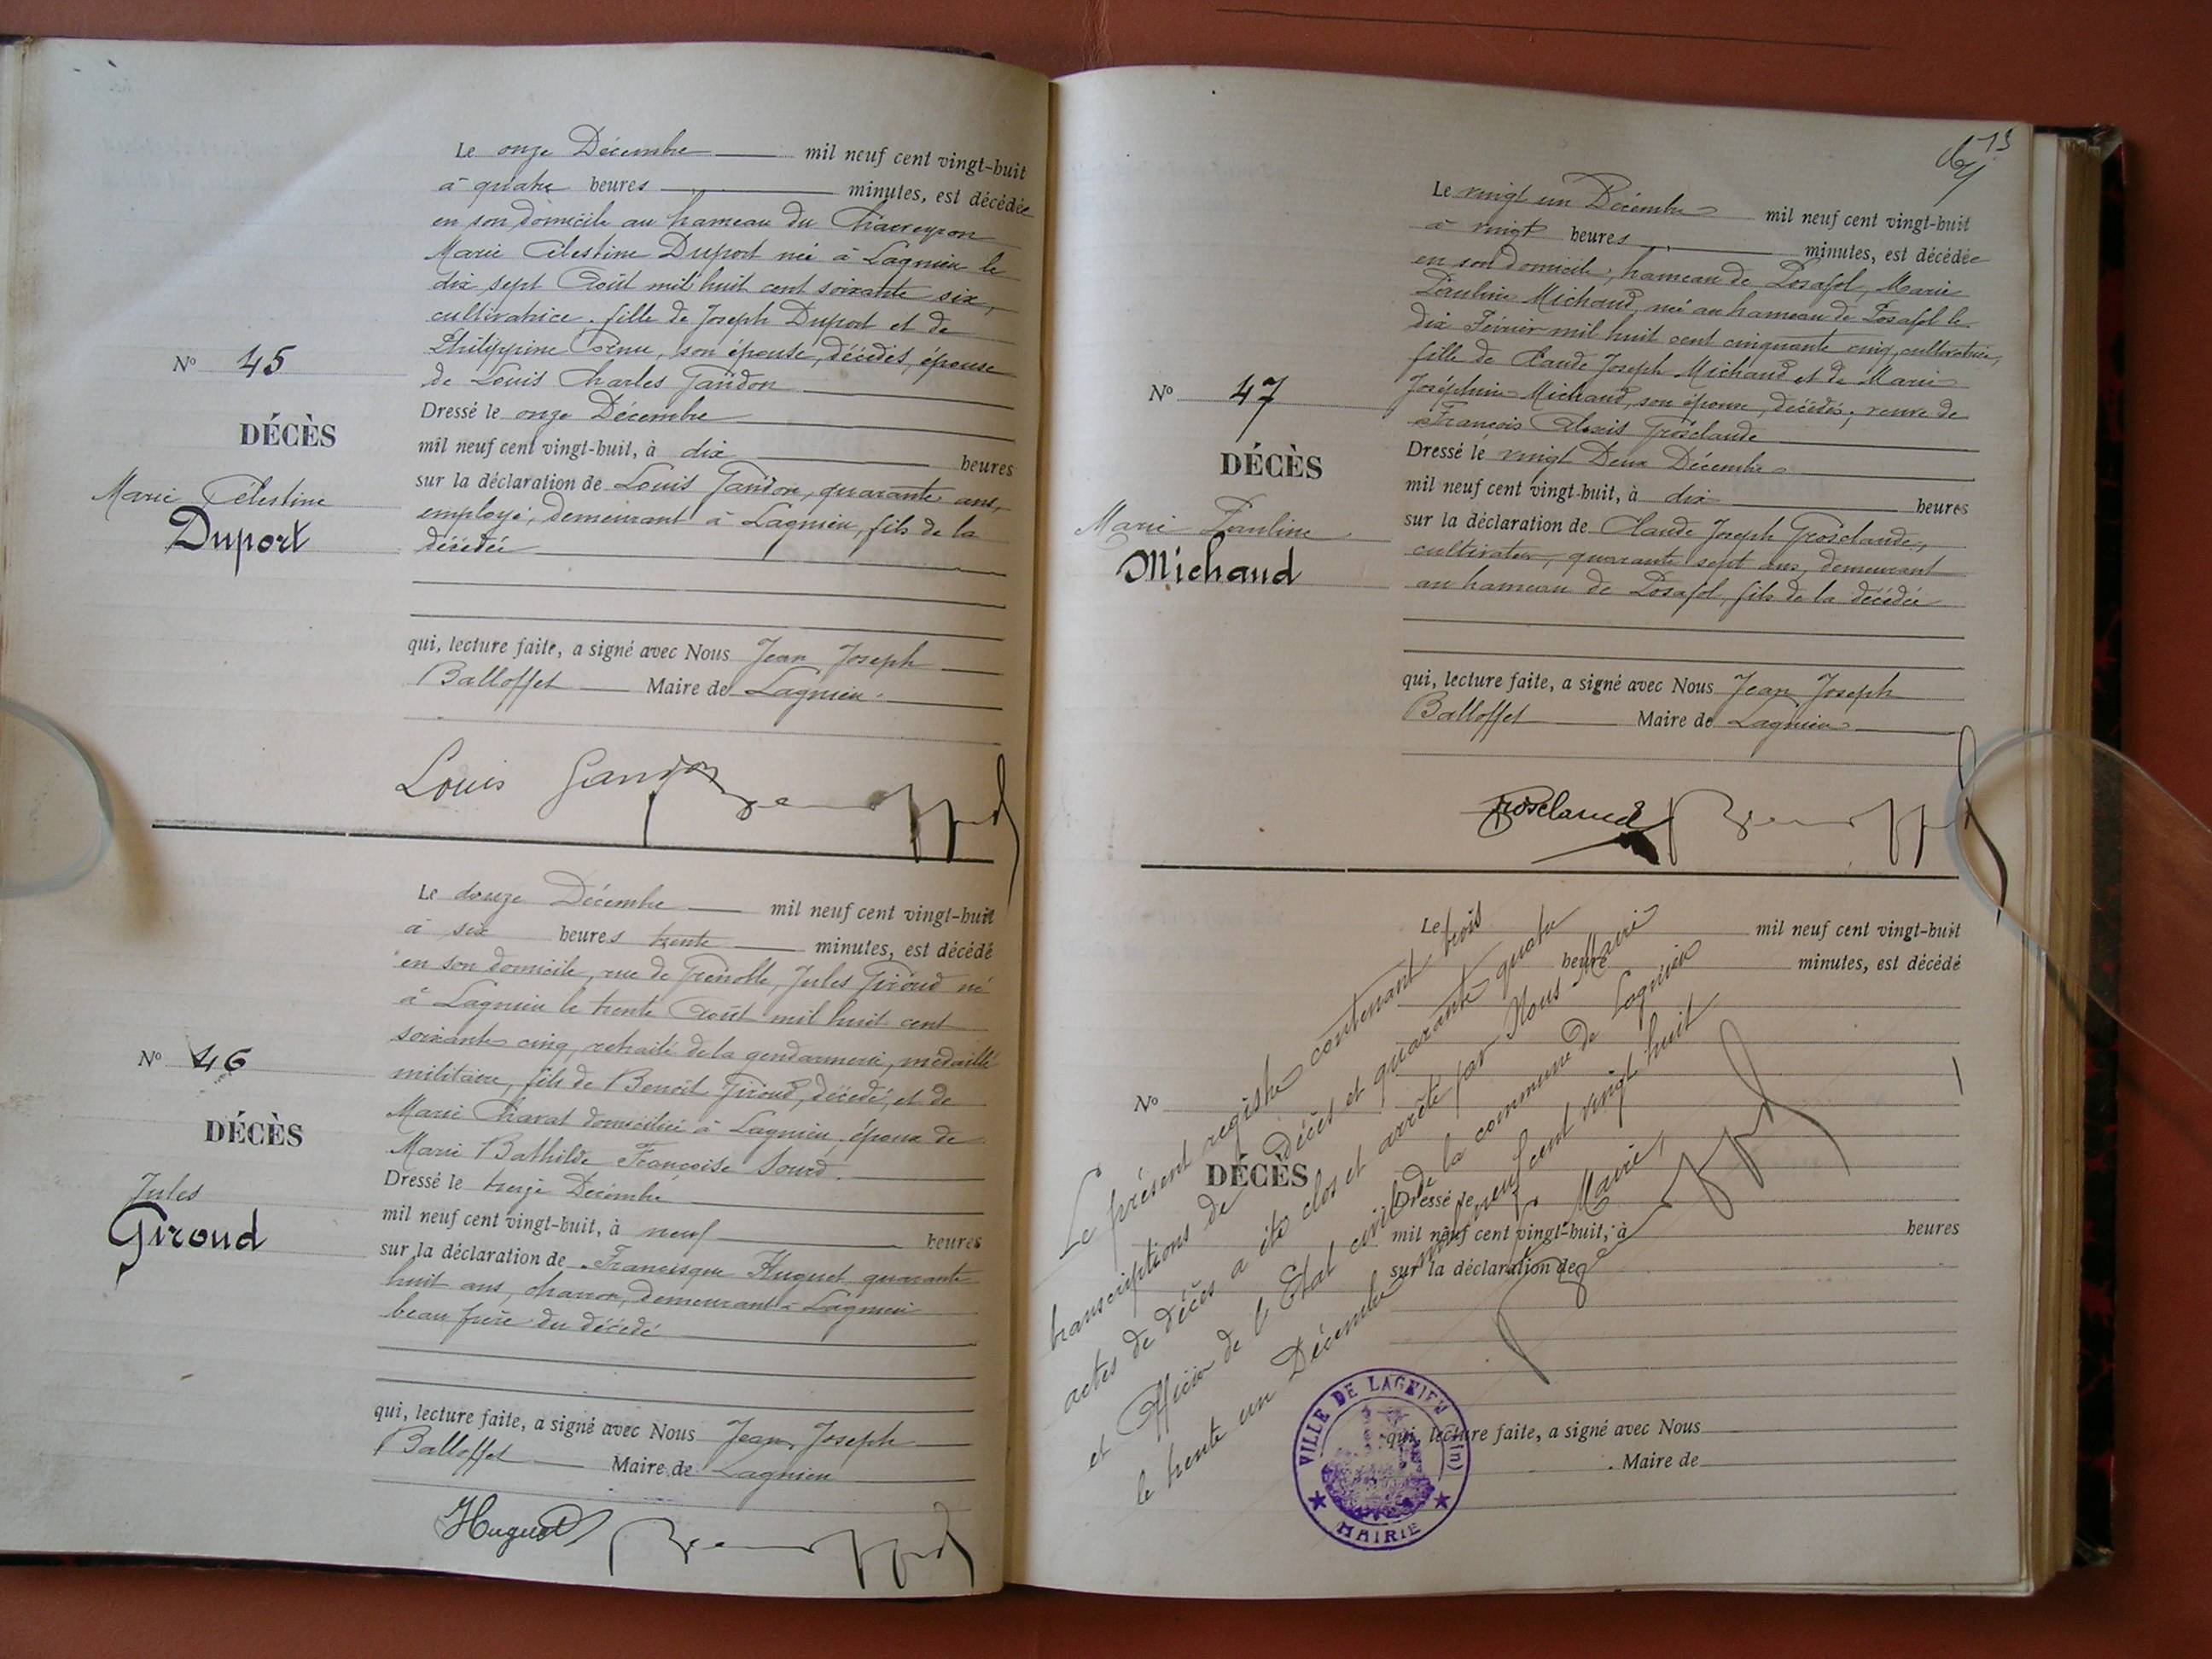 Le onze Décembre mil neuf cent vingt-huit
à quatre heures minutes, est décédée
en son domicile au hameau du Charveyron
Marie Célestine Duport née à Lagnieu le
dix sept Août mil huit cent soixante six,
cultivatrice, fille de Joseph Duport et de
Philippine Cornu, son épouse, décédés, épouse
de Louis Charles Gandon
Dressé le onze Décembre
mil neuf cent vingt-huit, à dix heures
sur la déclaration de Louis Gandon, quarante ans,
employé, demeurant à Lagnieu, fils de la
décédée
qui, lecture faite, a signé avec Nous Jean Joseph
Balloffet Maire de Lagnieu.
Louis Gandon
No 45
DÉCÈS
Marie Célestine
Duport
Le douze Décembre mil neuf cent vingt-huit
à six heures trente minutes, est décédé
en son domicile, rue de Grenoble, Jules Giroud né
à Lagnieu le trente Août mil huit cent
soixante cinq, retraité de la gendarmerie, médaillé
militaire, fils de Benoît Giroud, décédé, et de
Marie Charat domiciliée à Lagnieu, époux de
Marie Bathilde Françoise Sourd.
Dressé le treize Décembre
mil neuf cent vingt-huit, à neuf heures
sur la déclaration de Francisque Huguet quarante
huit ans, charron, demeurant à Lagnieu
beau frère du décédé
qui, lecture faite, a signé avec Nous Jean Joseph
Balloffet Maire de Lagnieu
Huguet
No 46
DÉCÈS
Jules
Giroud
13
Le vingt un Décembre mil neuf cent vingt-huit
à vingt heures minutes, est décédée
en son domicile, hameau de Posafol, Marie
Pauline Michaud, née au hameau de Posafol le
dix Février mil huit cent cinquante cinq, cultivatrice,
fille de Claude Joseph Michaud et de Marie
Joséphine Michaud, son épouse, décédés, veuve de
François Alexis Grosclaude
Dressé le vingt Deux Décembre
mil neuf cent vingt-huit, à dix heures
sur la déclaration de Claude Joseph Grosclaude,
cultivateur, quarante sept ans, demeurant
au hameau de Posafol, fils de la décédée
qui, lecture faite, a signé avec Nous Jean Joseph
Balloffet Maire de Lagnieu
Grosclaude
No 47
DÉCÈS
Marie Pauline
Michaud
Le mil neuf cent vingt-huit
heure minutes, est décédé
No
DÉCÈS
Dressé le
mil neuf cent vingt-huit, à heures
sur la déclaration de
qui, lecture faite, a signé avec Nous
Maire de
Le présent registre contenant trois
transcriptions de décès et quarante quatre
actes de décès a été clos et arrêté par Nous Maire
et Officier de l'Etat civil de la commune de Lagnieu
le trente un Décembre mil neuf cent vingt huit
Le Maire,
VILLE DE LAGNIEU (Ain)
MAIRIE